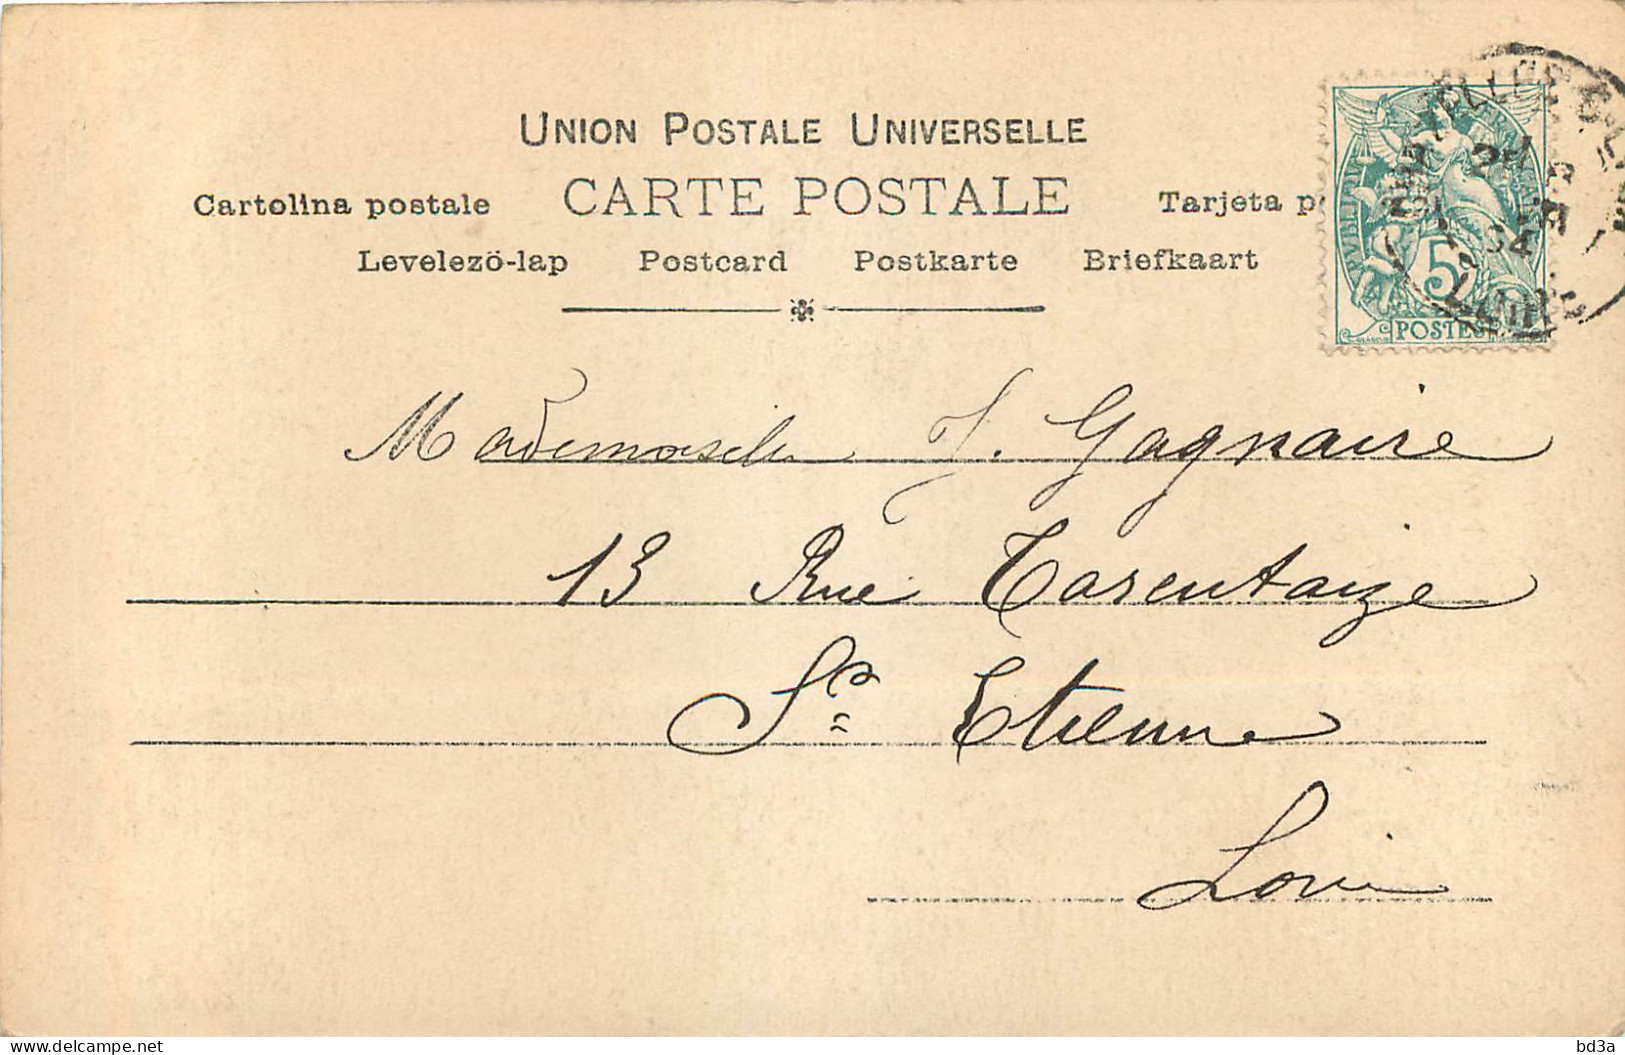 UNION POSTALE UNIVERSELLE
Cartolina postale CARTE POSTALE Tarjeta
Levelezö-lap Postcard Postkarte Briefkaart
5
POSTES
LOIRE
Mademoiselle J. Gagnaire
13 Rue Tarentaize
St Etienne
Loire
www.delcampe.net
bd3a